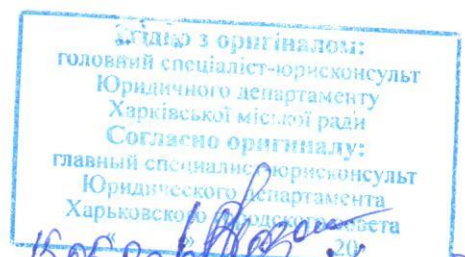 Згідно з оригіналом:
головний спеціаліст-юрисконсульт
Юридичного департаменту
Харківської міської ради
Согласно оригиналу:
главный специалист-юрисконсульт
Юридического департамента
Харьковского городского совета
« » 20